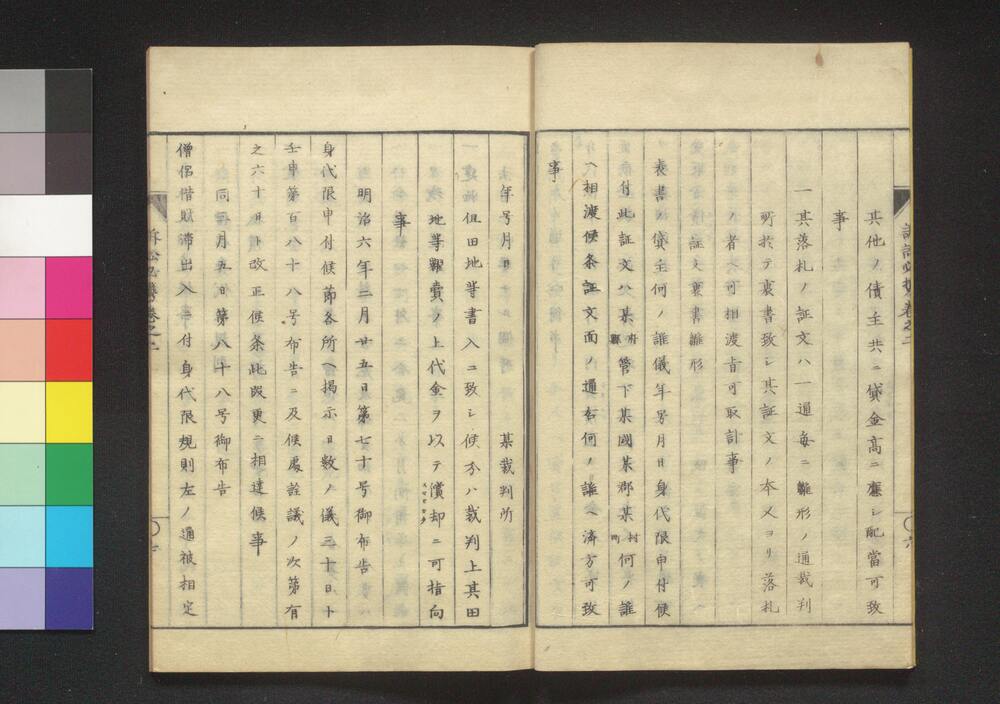 其他ノ債主共ニ貸金高ニ應シ配當可致
事
一其落札ノ証文ハ一通毎ニ雛形ノ通裁判
所於テ裏書致シ其証文ノ本〆ヨリ落札
ノ者ヘ可相渡旨可取計事
証文裏書雛形
表書ノ貸主何ノ誰儀年号月日身代限申付候
付此証文ハ某府縣管下某國某郡某村町何ノ誰
ヘ相渡候条証文面ノ通右何ノ誰ヘ済方可致
事
年号月日 某裁判所
一但田地等書入ニ致シ候分ハ裁判上其田
地等糶賣ノ上代金ヲ以テ濟却ニ可指向
事
明治六年二月廿五日第七十号御布告
身代限申付候節各所ヘ掲示日数ノ儀三十日ト
壬申第百八十八号布告ニ及候處詮議ノ次第有
之六十日ト改正候条此段更ニ相達候事
同三月五日第八十八号御布告
僧侶借財滞出入ニ付身代限規則左ノ通被相定